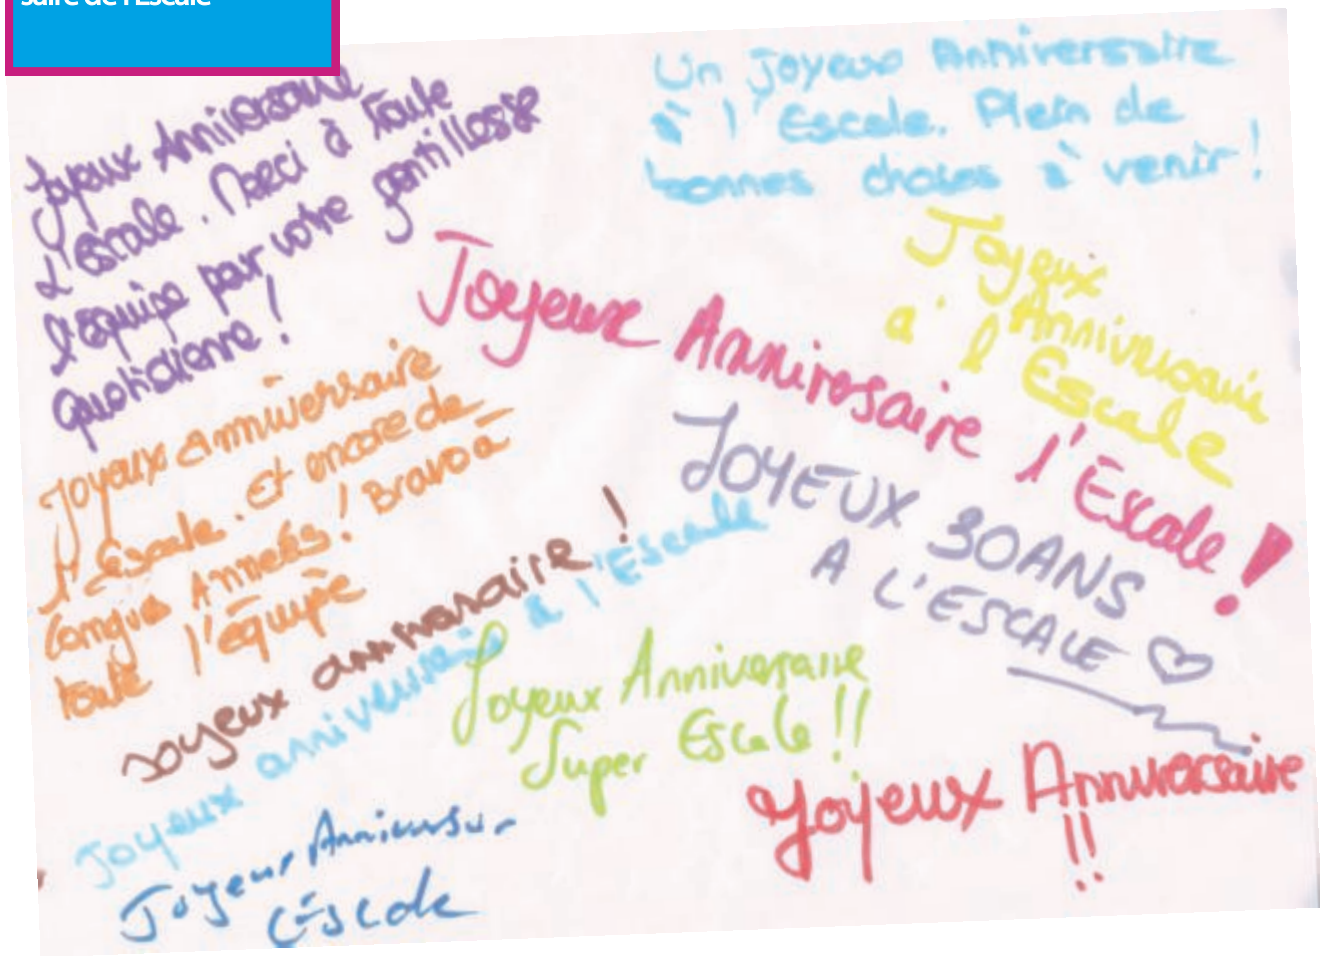 saire de l'Escale
Joyeux Anniversaire
L'Escale. Merci à toute
l'équipe par votre gentillesse
quotidienne !
Un Joyeux Anniversaire
à l'Escale. Plein de
bonnes choses à venir !
Joyeux
Anniversaire
à l'Escale
Joyeux Anniversaire l'Escale !
JOYEUX 30ANS
A L'ESCALE
Joyeux anniversaire
l'Escale. Et encore de
longues Années ! Bravo à
toute l'équipe
Joyeux anniversaire !
Joyeux anniversaire à l'Escale
Joyeux Anniversaire
Super Escale !!
Joyeux Anniversaire
!!
Joyeux
L'Escale